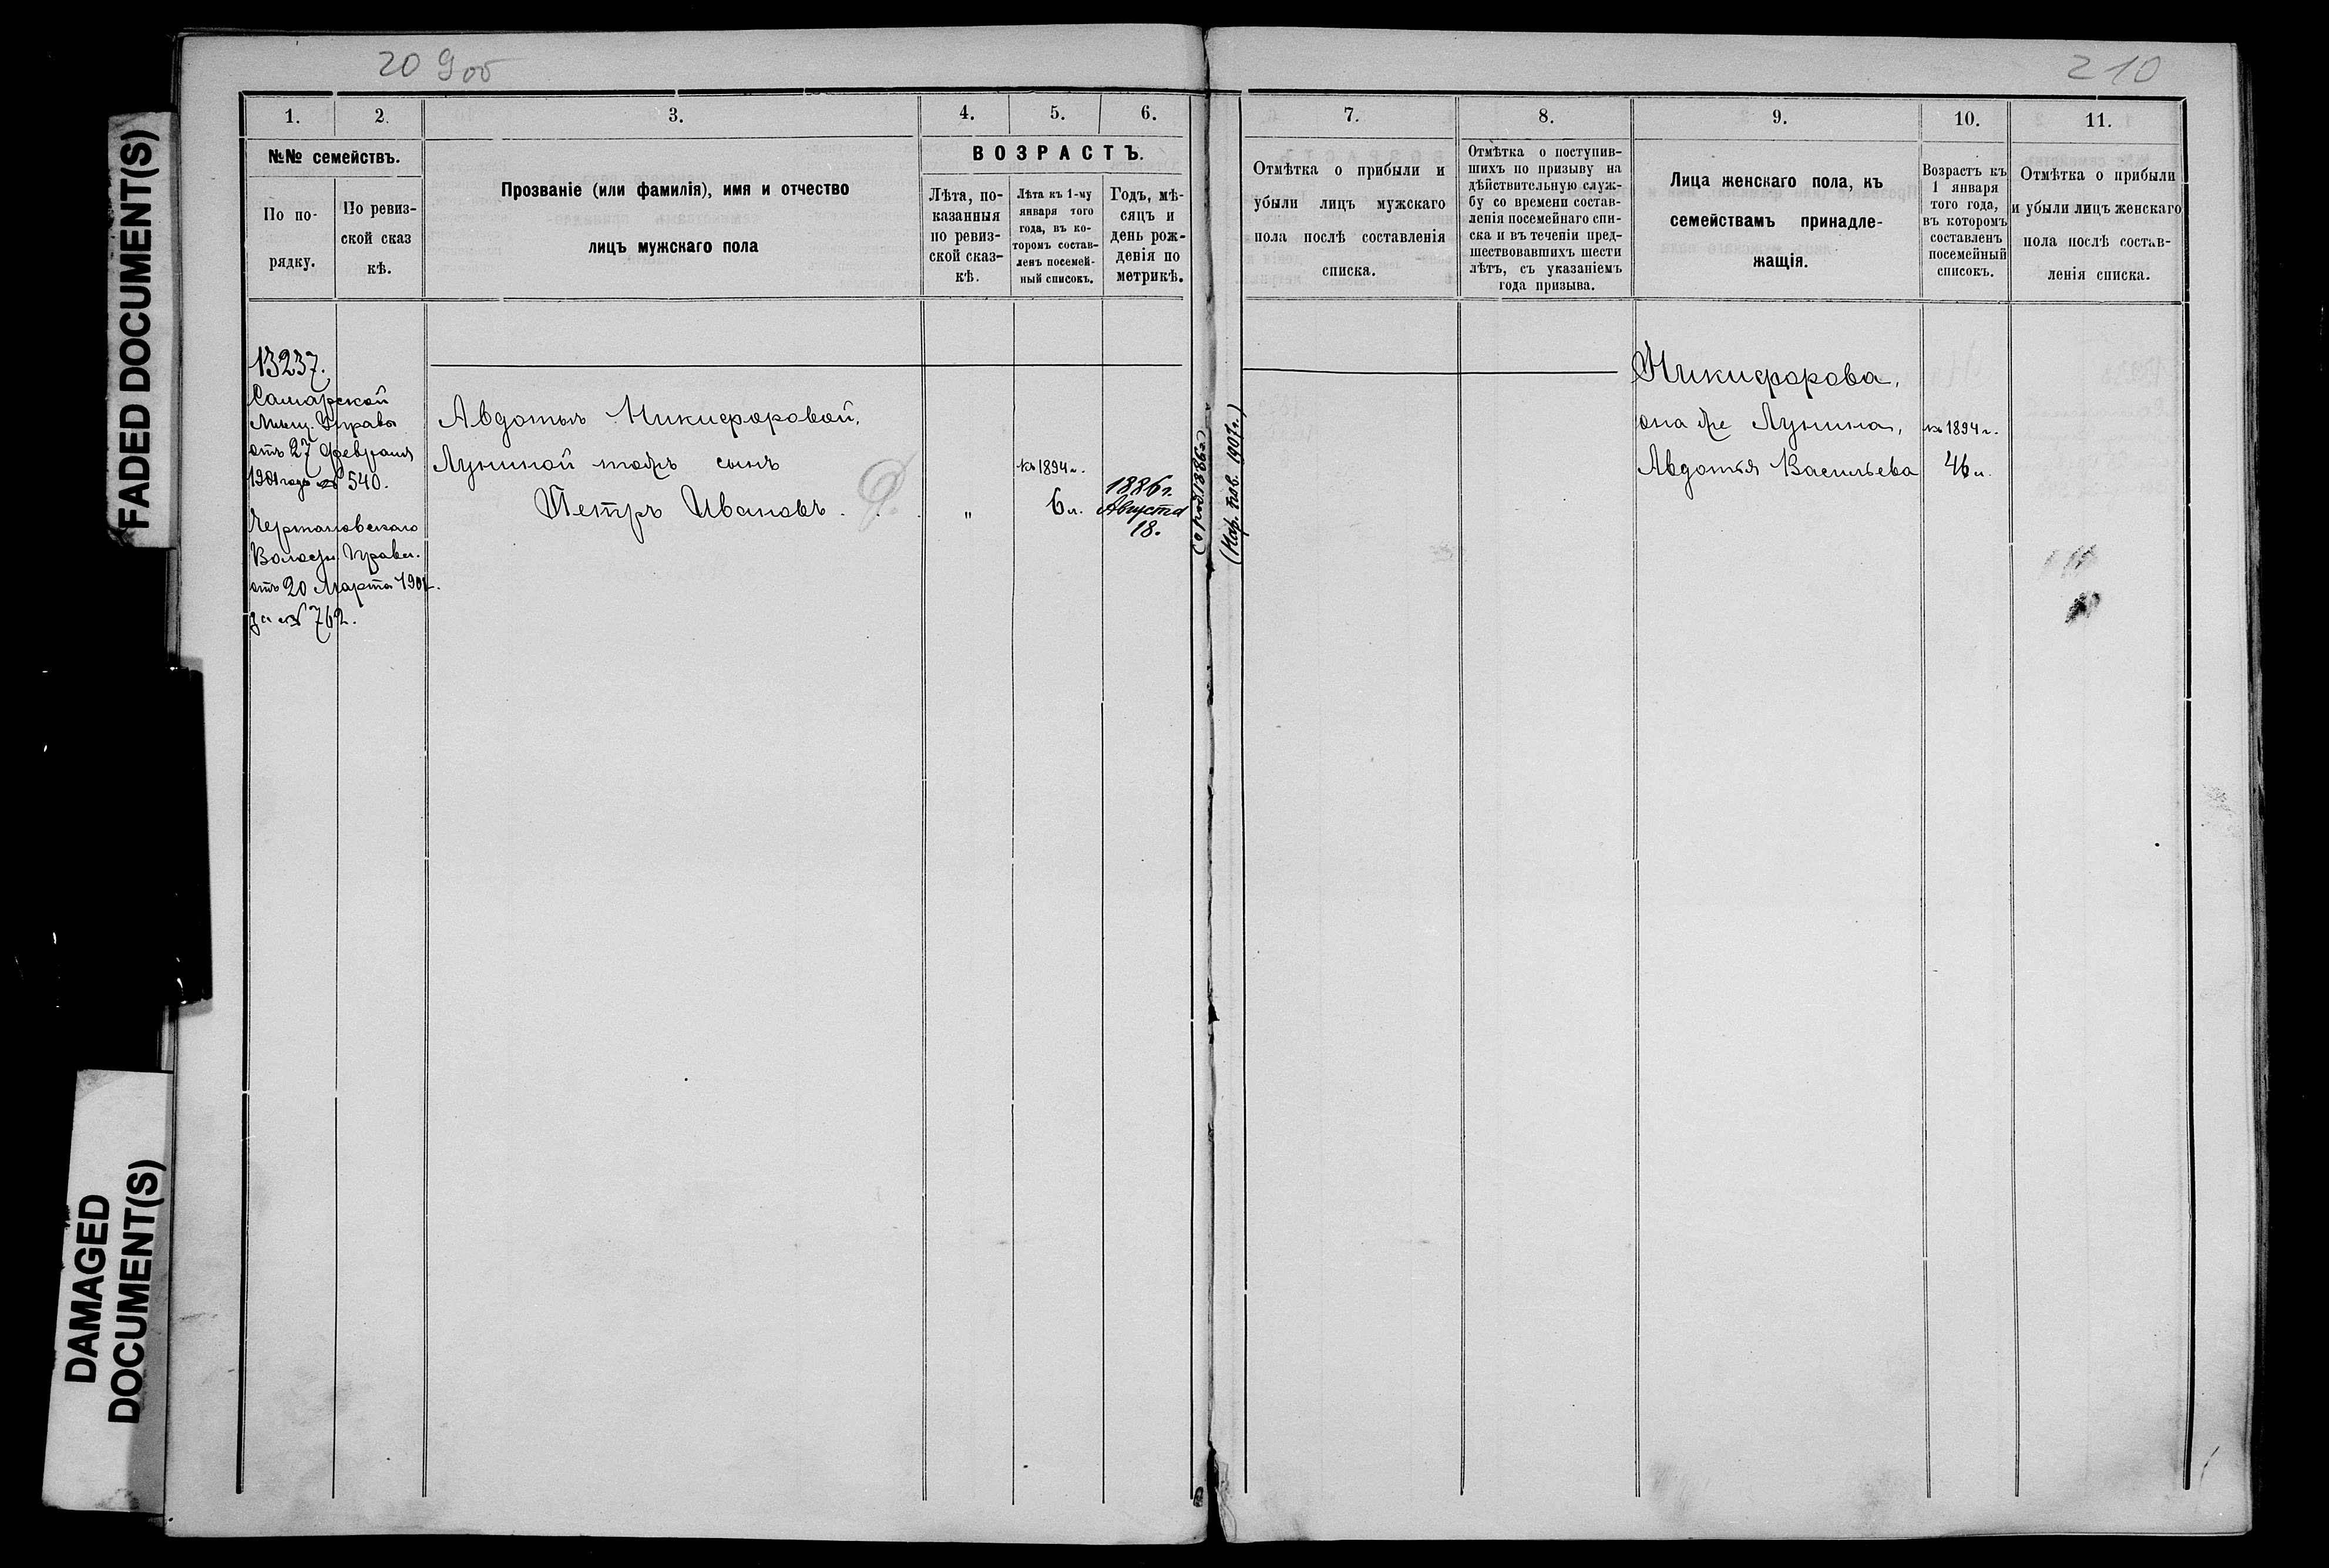 FADED DOCUMENT(S)
DAMAGED
DOCUMENT(S)
20 9 об
1.
2.
3.
4.
5.
6.
№№ семействъ.
По по-
рядку.
По ревиз-
ской сказ
кѣ.
Прозваніе (или фамилія), имя и отчество
лицъ мужскаго пола
ВОЗРАСТЪ.
Лѣта, по-
казанныя
по ревиз-
ской сказ-
кѣ.
Лѣта къ 1-му
января того
года, въ ко-
торомъ состав-
ленъ посемей-
ный списокъ.
Годъ, мѣ-
сяцъ и
день рож-
денія по
метрикѣ.
13237.
Самарской
Мѣщ. Управы
отъ 27 Февраля
1901 года № 540.
Волостн. Правл.
отъ 20 Марта 1901 г.
за № 762.
Авдотьи Никифоровой,
Луниной тожъ сынъ
Петръ Ивановъ.
"
къ 1894 г.
6 л.
1886 г.
Августа
18.
210
7.
8.
9.
10.
11.
Отмѣтка о прибыли и
убыли лицъ мужскаго
пола послѣ составленія
списка.
Отмѣтка о поступив-
шихъ по призыву на
дѣйствительную служ-
бу со времени состав-
ленія посемейнаго спи-
ска и въ теченіи пред-
шествовавшихъ шести
лѣтъ, съ указаніемъ
года призыва.
Лица женскаго пола, къ
семействамъ принадле-
жащія.
Возрастъ къ
1 января
того года,
въ которомъ
составленъ
посемейный
списокъ.
Отмѣтка о прибыли
и убыли лицъ женскаго
пола послѣ состав-
ленія списка.
Никифорова,
она же Лунина,
Авдотья Васильева
къ 1894 г.
46 л.